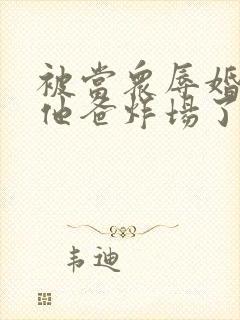 被當衆辱婚
他爸炸場了
韦迪